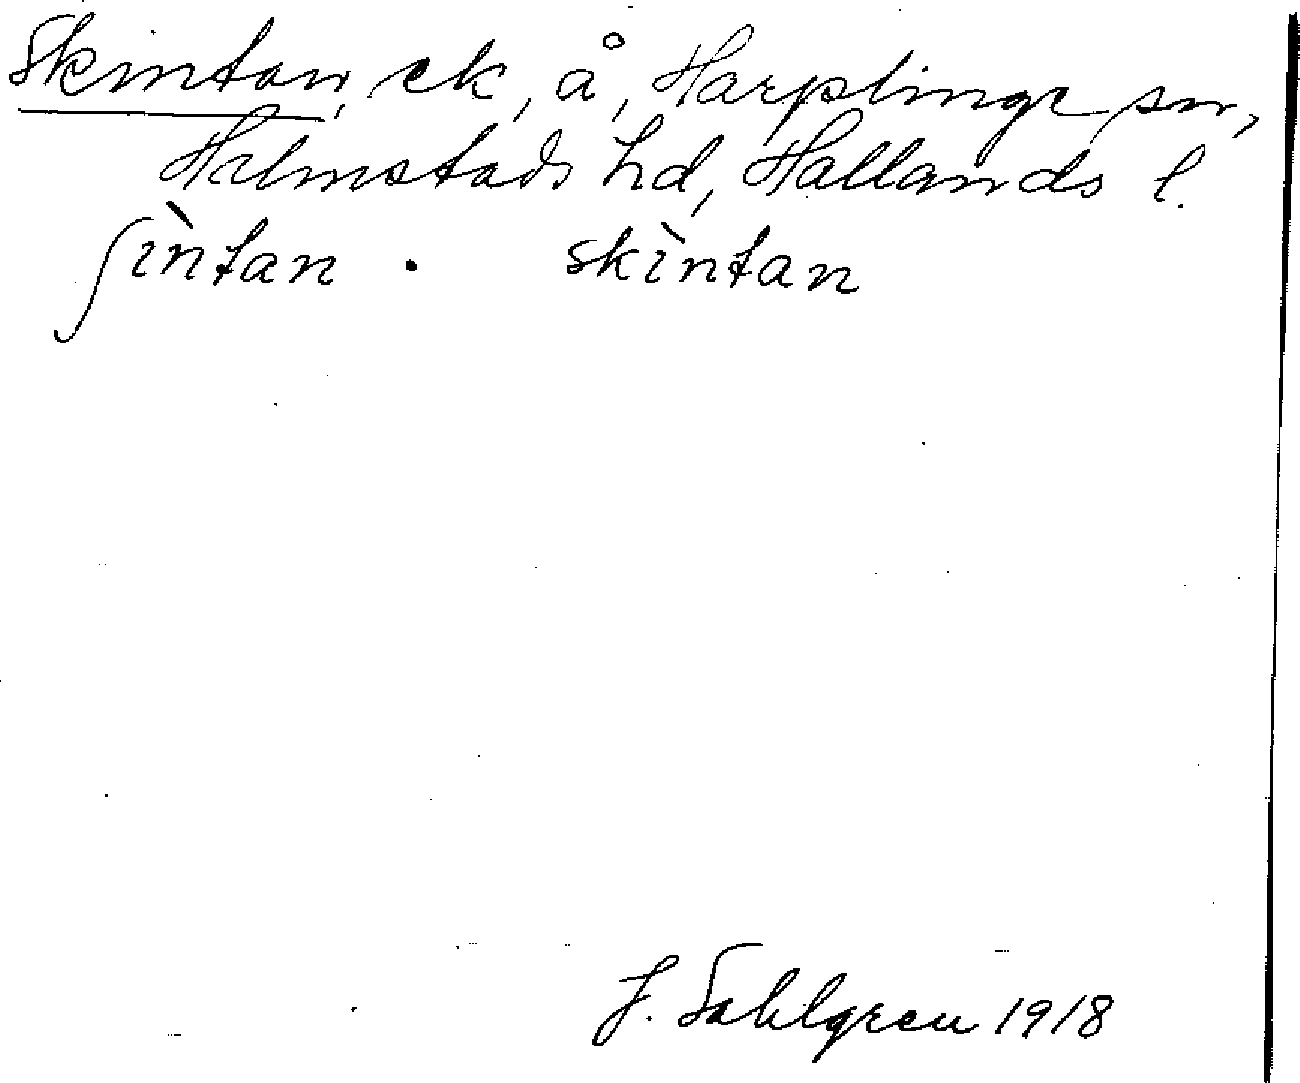 Skintan, ek, å, Harplinge sn,
Halmstads hd, Hallands l.
ʃìntan . skìntan
J. Sahlgren 1918